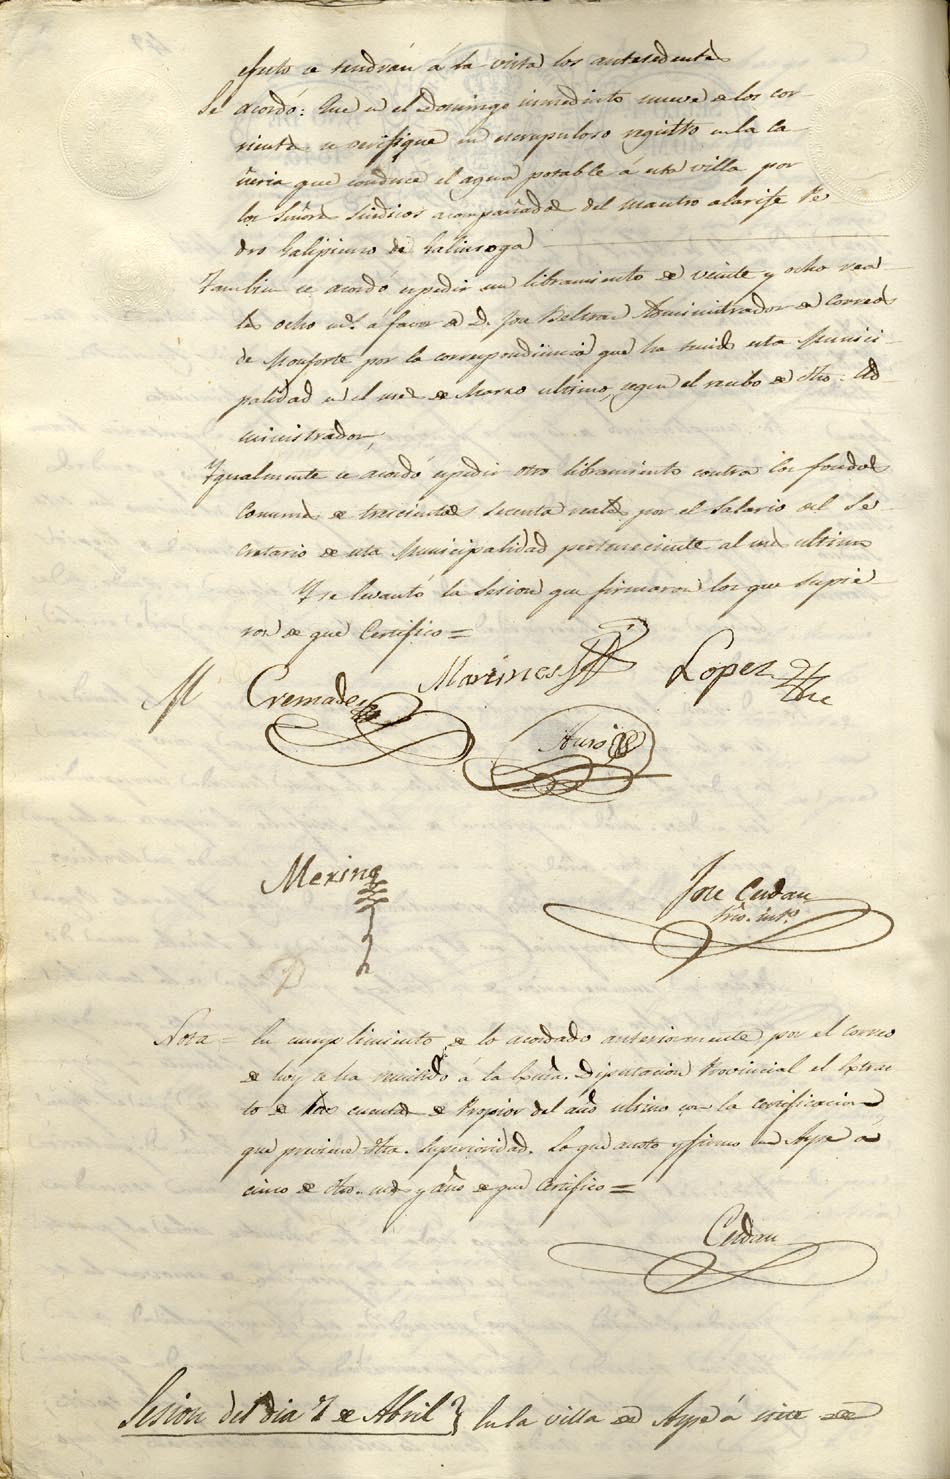 efecto se tendrán á la vista los antesedentes
Se acordó: Que en el Domingo inmediato nueve de los cor-
rientes se verifique un escrupuloso registro en la ca
ñeria que conduce el agua potable á esta villa por
los Señores Sindicos acompañados del maestro alarife Pe
dro Galipienso de Galinsoga
Tambien se acordó espedir un libramiento de veinte y ocho rea-
les ocho ms. á favor de D. Jose Beltran Administrador de Correos
de Monforte por la correspondiencia que ha tenido esta Munici-
palidad en el mes de Marzo ultimo, segun el recibo de dho. Ad-
ministrador,
Ygualmente se acordó espedir otro libramiento contra los fondos
Comunes de trescientos secenta reales por el salario del Se-
cretario de esta Municipalidad perteneciente al mes ultimo
Y se levantó la Sesion que firmaron los que supie-
ron de que Certifico =
M Cremades Martines Lopez
Merino
Jose Cerdan
Srio. into.
Nota = En cumplimiento de lo acordado anteriormente por el correo
de hoy se ha remitido á la Exma. Diputacion Provincial el Extrac-
to de las cuentas de Propios del año ultimo con la certificacion
que previene dha. Superioridad. Lo que anoto y firmo en Aspe á
cinco de dho. mes y año de que Certifico =
Cerdan
Sesion del dia 7 de Abril } En la villa de Aspe á siete de